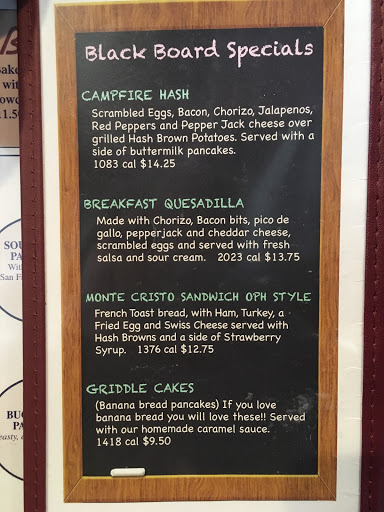 Black Board Specials
CAMPFIRE HASH
Scrambled Eggs, Bacon, Chorizo, Jalapenos,
Red Peppers and Pepper Jack cheese over
grilled Hash Brown Potatoes. Served with a
side of buttermilk pancakes.
1083 cal $14.25
BREAKFAST QUESADILLA
Made with Chorizo, Bacon bits, pico de
gallo, pepperjack and cheddar cheese,
scrambled eggs and served with fresh
salsa and sour cream. 2023 cal $13.75
MONTE CRISTO SANDWICH OPH STYLE
French Toast bread, with Ham, Turkey, a
Fried Egg and Swiss Cheese served with
Hash Browns and a side of Strawberry
Syrup. 1376 cal $12.75
GRIDDLE CAKES
(Banana bread pancakes) If you love
banana bread you will love these!! Served
with our homemade caramel sauce.
1418 cal $9.50
with
SOU
PA
With
San F
BU
PA